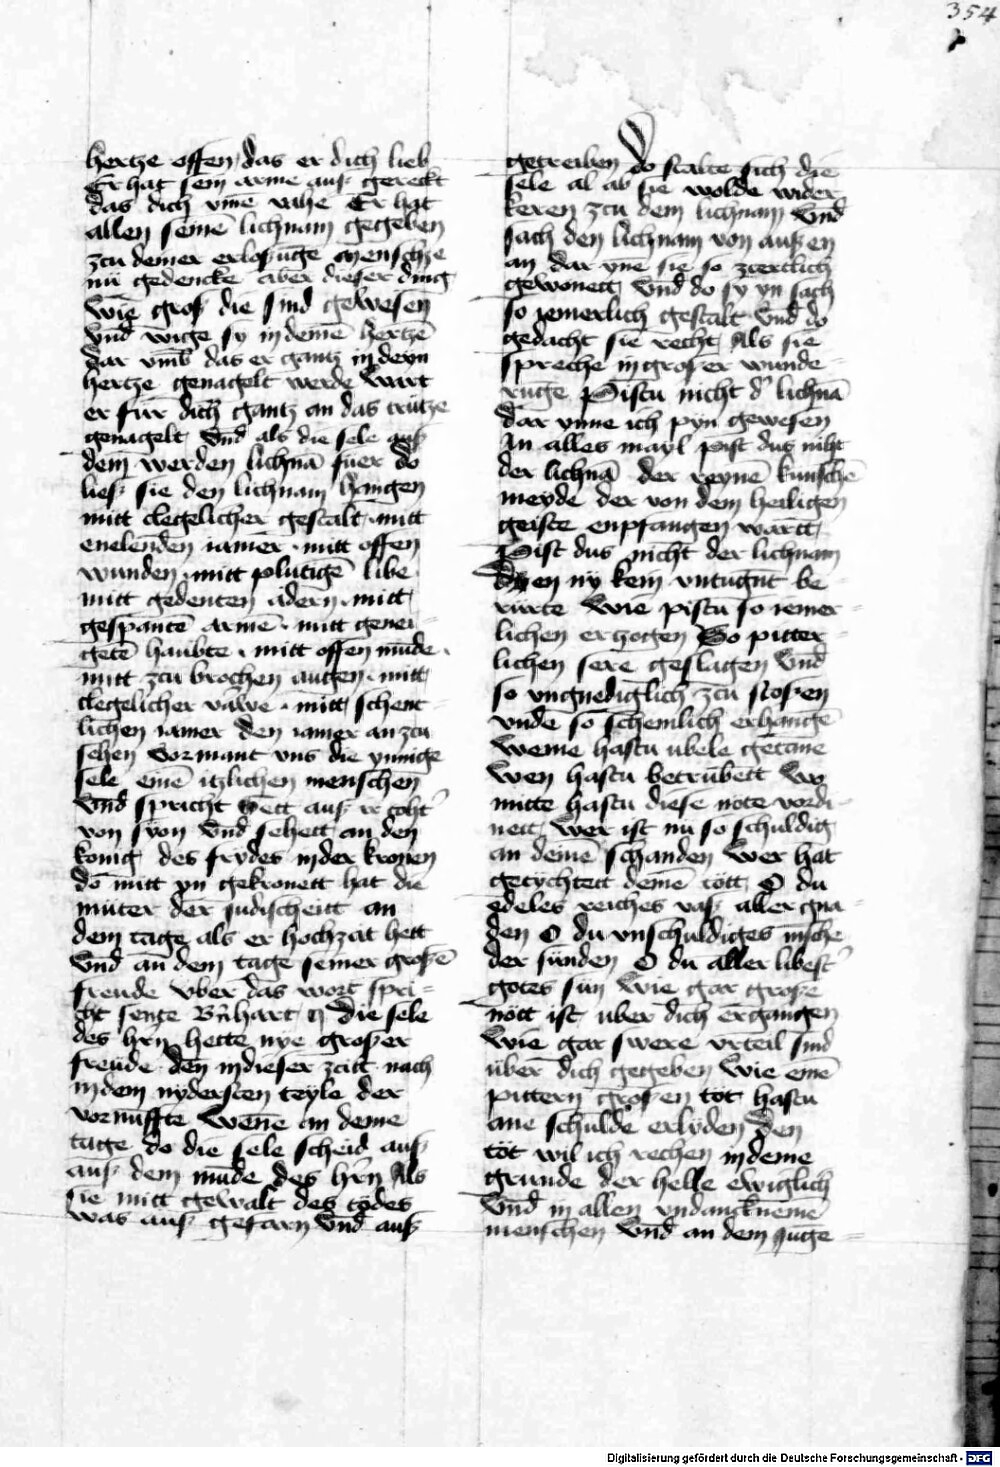 354
hertze offen das er dich lieb
Er hat sein arme auß gereckt
das dich vme vahe Er hat
allen seinē lichnam gegeben
zcu deiner erlosūge Menschze
nū gedencke aber dieser ding
wie groß die sind gewesen
Vnd wige sy in deinē hertzē
dar vmb das er gantz in deym
hertze genagelt werde wart
er fur dich gantz an das crūtze
genagelt Vnd als die sele auß
dem werden lichnā fuer do
ließ sie den lichnam hangen
mitt clegelicher gestalt · mitt
enelenden iamer · mitt offen
wunden · mitt plutigē libe
mitt gedenten adern · mitt
gespantē armē · mitt genei-
getē haubte · mitt offen mūde ·
mitt zcu brochen augen · mitt
clegelicher varwe · mitt schent-
lichen iamer den iamer an zcu
sehen Vormant vns die ynnige
sele einē itzlichen menschen
Vnd spricht Gett auß ir toht'
von syon Vnd sehett an den
konig des frydes in der kronen
do mitt yn gekronett hat die
muter der Judischeitt an
dem tage als er hochzeit hett
Vnd an dem tage seiner großē
freude Vber das wort spri-
cht sente Bn̄hart Die sele
des hrn̄ hette nye großer
freude den in dieser zeitt nach
in dem nydersten teyle der
vornūffte Wene an deme
tage do die sele scheid auß
auß dem mūde des hrn̄ Als
sie mitt gewalt des todes
was auß gefarn Vnd auß
getreiben Do stalte sich die
sele al ab sie wolde wider
keren zcu dem lichnam Vnd
sach den lichnam von außen
an dar yne sie so zcertlich
gewonett Vnd do sy yn sach
so iemerlich gestalt Vnd do
gedacht sie recht Als sie
spreche in großer wunde-
rūge Pistu nicht d' lichnā
dar ynne ich pyn gewesen
An alles mayl Pist dus niht
der lichnā der reynē kunschē
meyde der von dem heiligen
geiste enpfangen wartt
Pist dus nicht der lichnam
Den ny kein vntugnt be-
rurte Wie pistu so iemer-
lichen erzogen So pitter-
lichen sere geslagen Vnd
so vngnediglich zcu stoßen
vnde so schemlich erhangē
Weme hastu ubele getane
Wen hastu betrubett Wo
mitte hastu diese note vordi-
nett Wer ist nu so schuldig
an deinē schanden Wer hat
getychtett deinē tott O du
edeles reiches vaß aller gna-
den O du vnschuldiges mēsche
der sunden O du aller libest'
gotes sun Wie gar große
nött ist uber dich ergangen
Wie gar swere vrteil sind
uber dich gegeben Wie einē
pittern großen tot hastu
ane schulde erlyden Den
tot wil ich rechen in deme
grunde der helle ewiglich
Vnd in allen vndancknemē
menschen Vnd an dem Jūge-
Digitalisierung gefördert durch die Deutsche Forschungsgemeinschaft - DFG